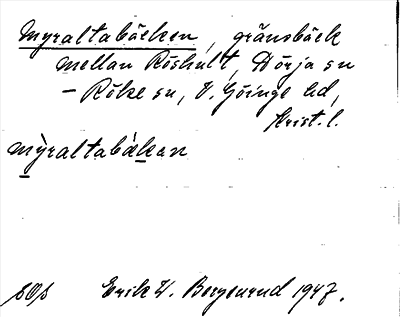 Myraltabäcken, gränsbäck
mellan Röshult, Dörja sn
– Röke sn, V. Göinge hd,
Krist. l.
mỳraltabä̀kan
SOs Erik W. Bergenrud 1947.